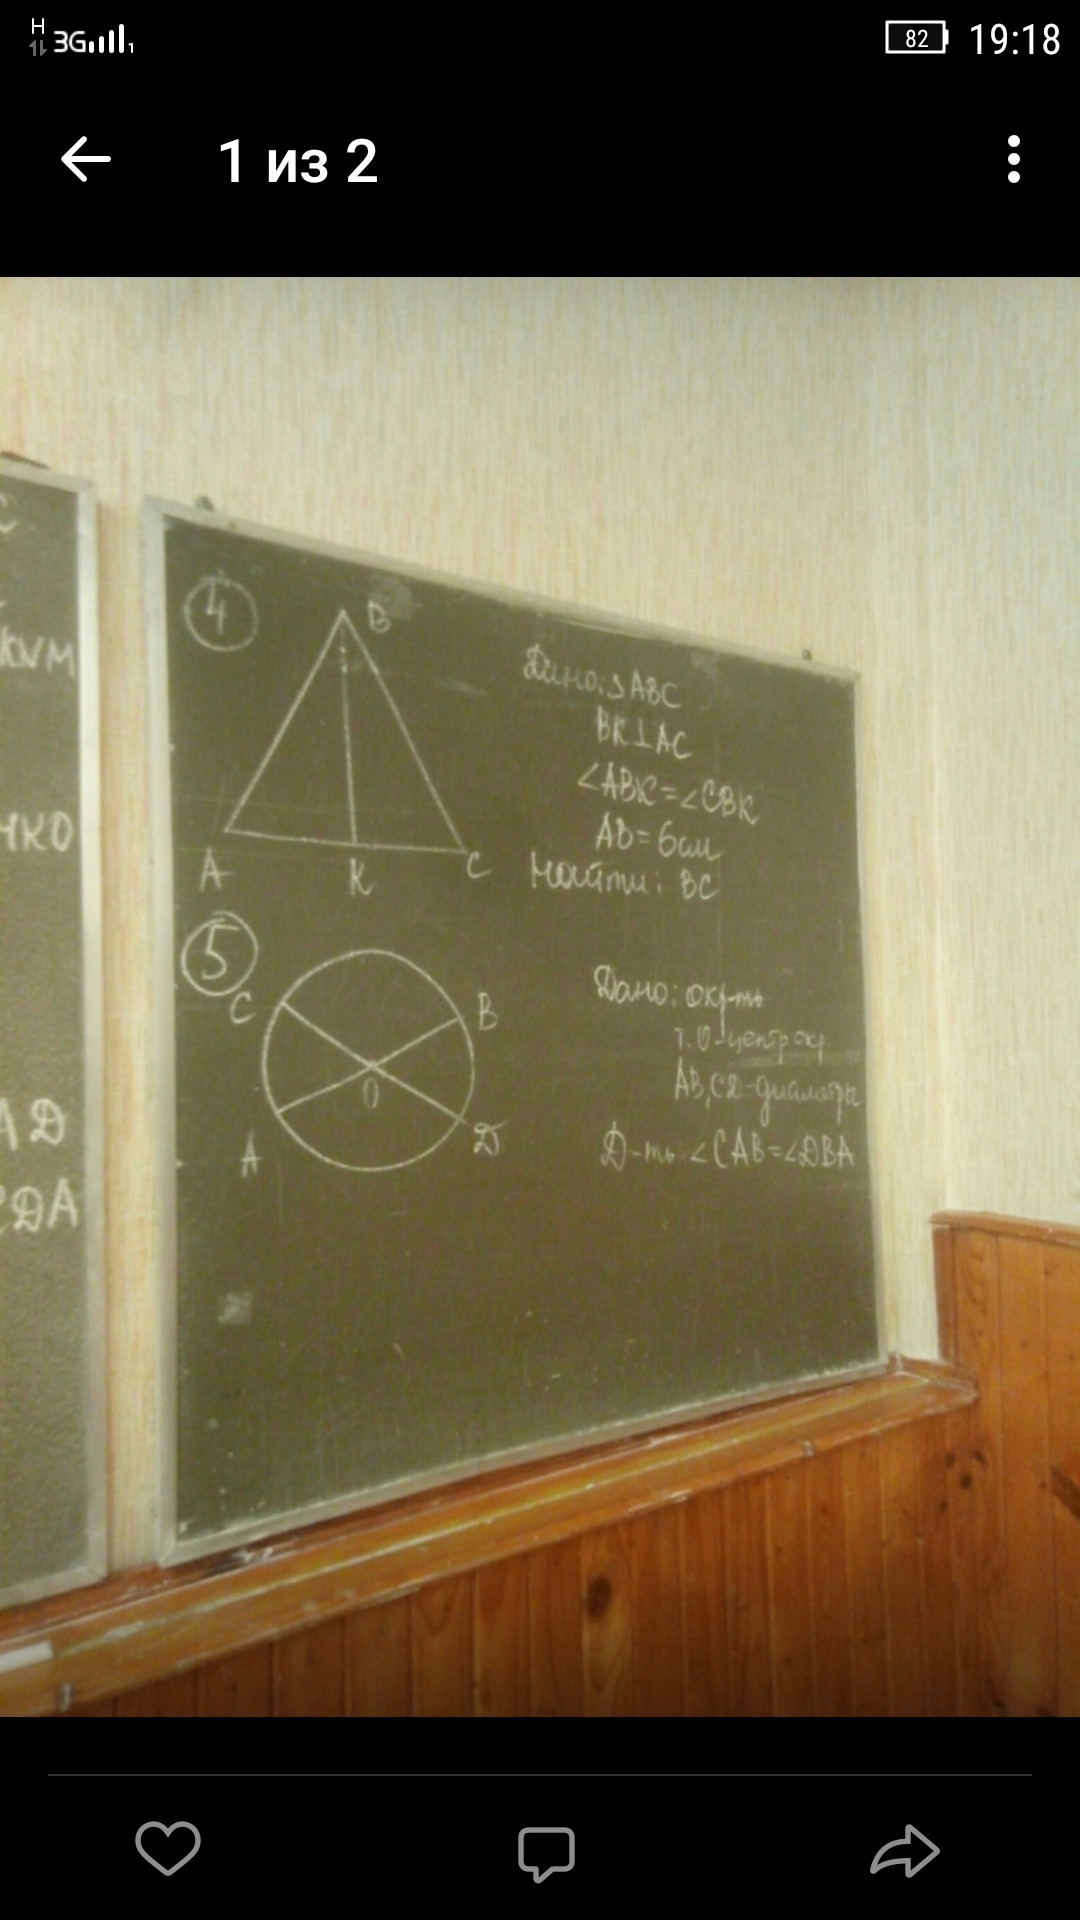 H
3G 1
82 19:18
1 из 2
С
KNM
НКО
АД
СДА
4
B
A
K
C
Дано: △ABC
BK⊥AC
∠ABK=∠CBK
AB=6см
Найти: BC
5
C
B
O
A
Д
Дано: окр-ть
т.О-центр окр
AB,CД-диаметры
Д-ть: ∠CAB=∠ДBA